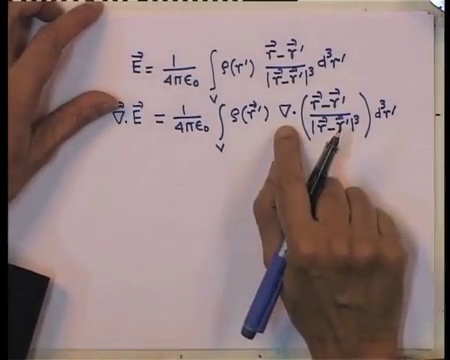 E⃗ = 1/4πε₀ ∫_V ρ(r') (r⃗-r⃗')/|r⃗-r⃗'|³ d³r'
∇⃗·E⃗ = 1/4πε₀ ∫_V ρ(r⃗') ∇·((r⃗-r⃗')/|r⃗-r⃗'|³) d³r'